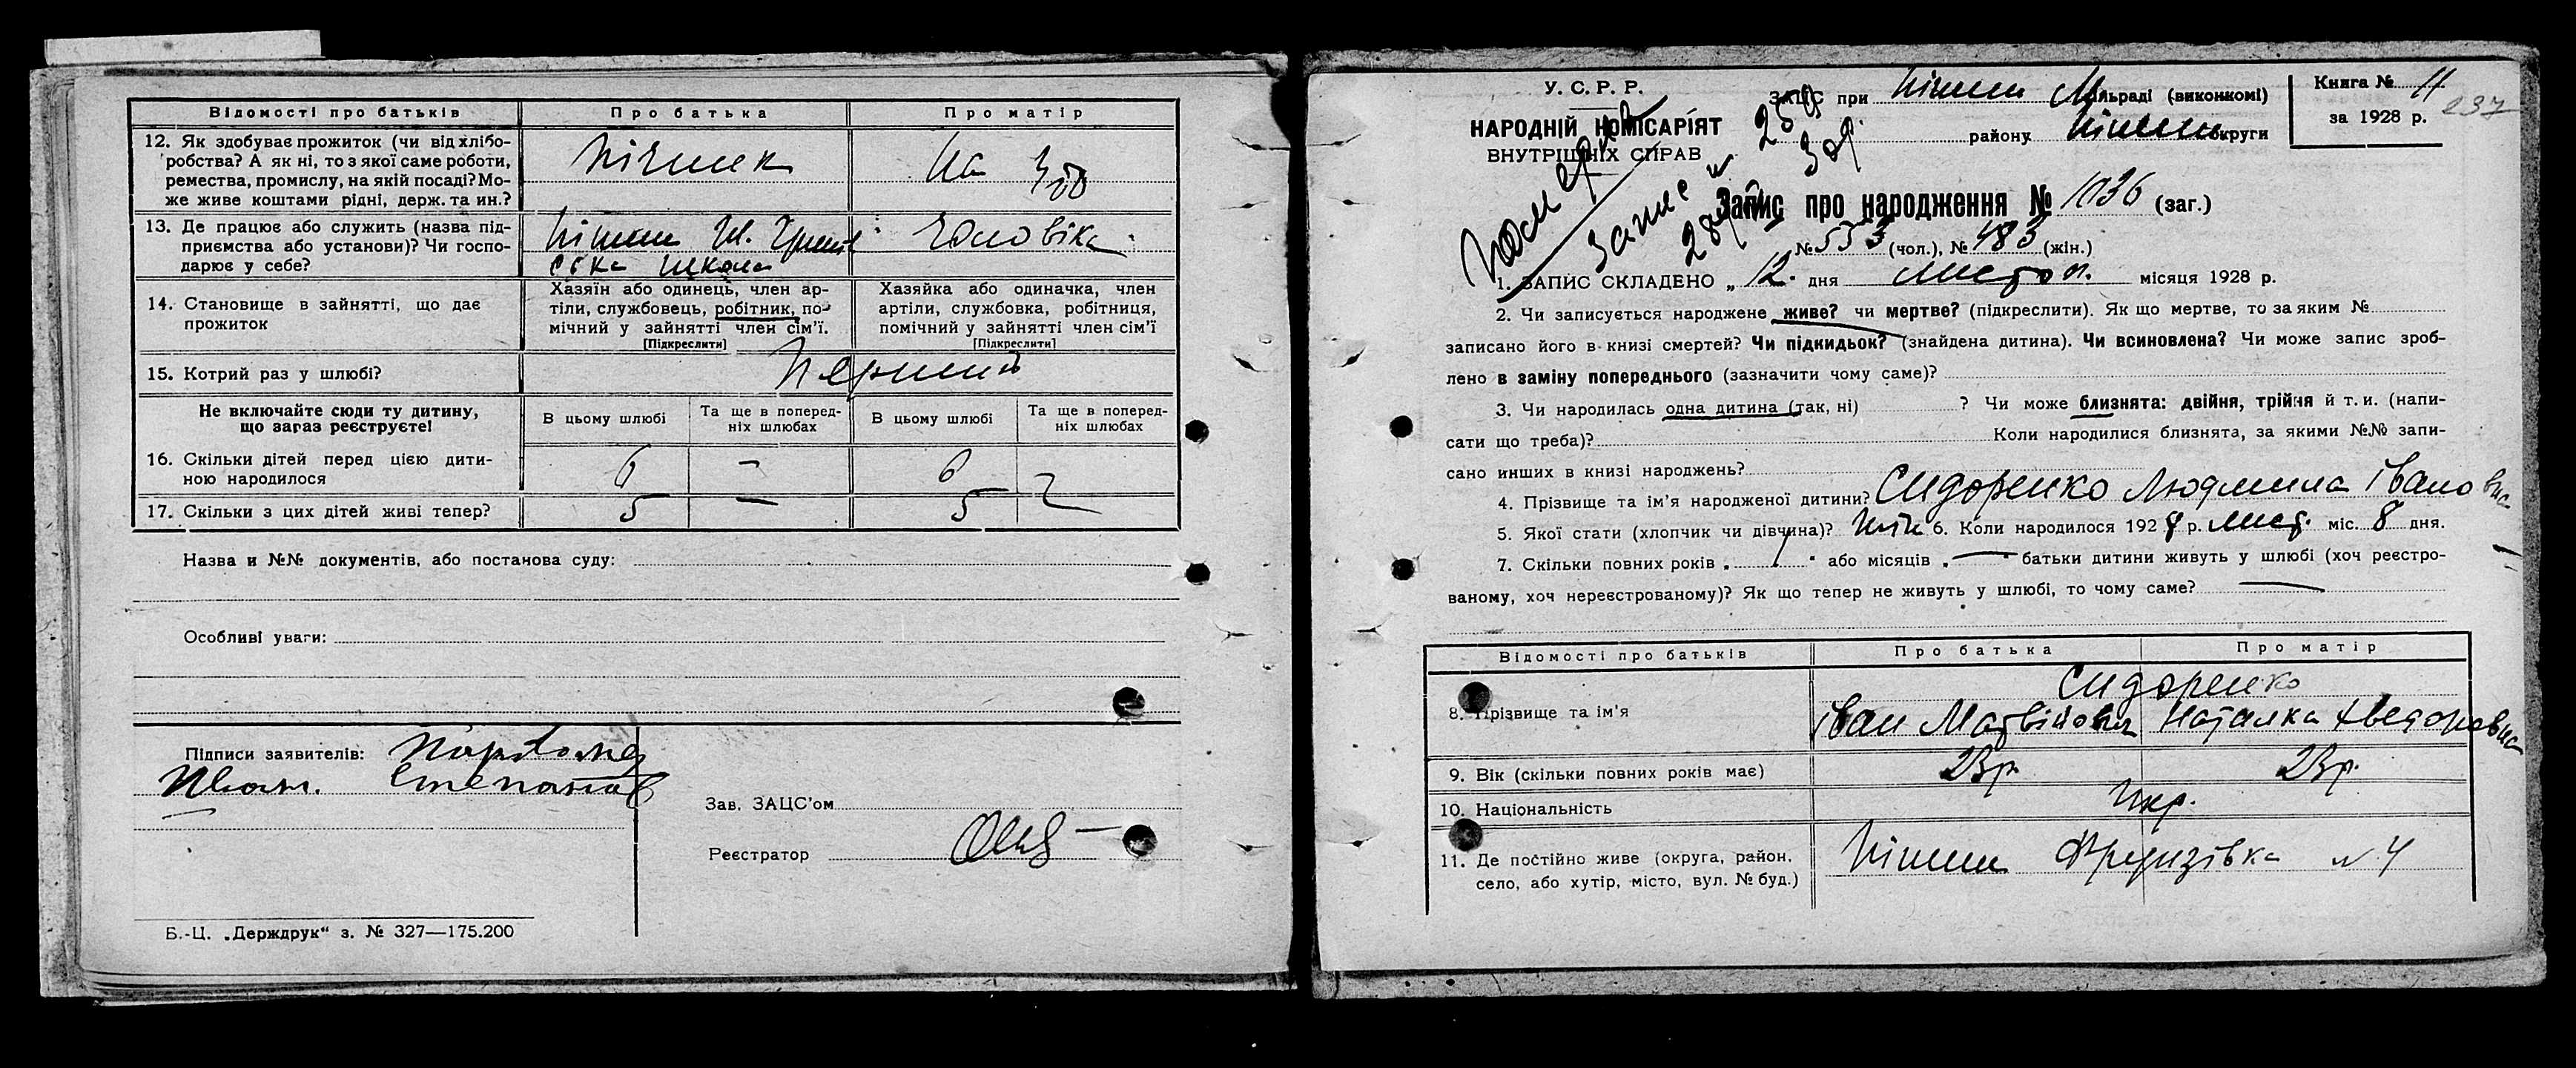 Відомості про батьків
Про батька
Про матір
12. Як здобуває прожиток (чи від хлібо-
робства? А як ні, то з якої саме роботи,
ремества, промислу, на якій посаді? Мо-
же живе коштами рідні, держ. та ин.?
На
13. Де працює або служить (назва під-
приємства або установи)? Чи госпо-
дарює у себе?
ська школа
чоловіка
14. Становище в зайнятті, що дає
прожиток
Хазяїн або одинець, член ар-
тіли, службовець, робітник, по-
мічний у зайнятті член сім'ї.
[Підкреслити]
Хазяйка або одиначка, член
артіли, службовка, робітниця,
помічний у зайнятті член сім'ї
[Підкреслити]
15. Котрий раз у шлюбі?
Перший
Не включайте сюди ту дитину,
що зараз реєструєте!
В цьому шлюбі
Та ще в поперед-
ніх шлюбах
В цьому шлюбі
Та ще в поперед-
ніх шлюбах
16. Скільки дітей перед цією дити-
ною народилося
6 — 6
17. Скільки з цих дітей живі тепер?
5 — 5
Назва и №№ документів, або постанова суду:
Особливі уваги:
Підписи заявителів:
Иван. Степанов
Зав. ЗАЦС'ом
Реєстратор
Б.-Ц. „Держдрук“ з. № 327—175.200
У. С. Р. Р.
НАРОДНІЙ КОМІСАРІЯТ
ВНУТРІШНІХ СПРАВ
Запис
ЗАЦС при Ніжин М льраді (виконкомі)
району Ніжин округи
Книга № 11
за 1928 р.
237
Запис про народження № 1036 (заг.)
№ 553 (чол.), № 483 (жін.)
1. ЗАПИС СКЛАДЕНО „ 12. дня листоп. місяця 1928 р.
2. Чи записується народжене живе? чи мертве? (підкреслити). Як що мертве, то за яким №
записано його в книзі смертей? Чи підкидьок? (знайдена дитина). Чи всиновлена? Чи може запис зроб-
лено в заміну попереднього (зазначити чому саме)?
3. Чи народилась одна дитина (так, ні) ? Чи може близнята: двійня, трійня й т. и. (напи-
сати що треба)? Коли народилися близнята, за якими №№ запи-
сано инших в книзі народжень?
4. Прізвище та ім'я народженої дитини? Сидоренко Людмила Івановна
5. Якої стати (хлопчик чи дівчина)? жін 6. Коли народилося 1928 р. лист. міс. 8 дня.
7. Скільки повних років „ 1 " або місяців „ — " батьки дитини живуть у шлюбі (хоч реєстро-
ваному, хоч нереєстрованому)? Як що тепер не живуть у шлюбі, то чому саме? —
Відомості про батьків
Про батька
Про матір
Сидоренко
8. Прізвище та ім'я
Іван Матвійович
Наталка Хведоровна
9. Вік (скільки повних років має)
23р.
23р.
10. Національність
Укр.
11. Де постійно живе (округа, район,
село, або хутір, місто, вул. № буд.)
Ніжин Фрунзівка № 4